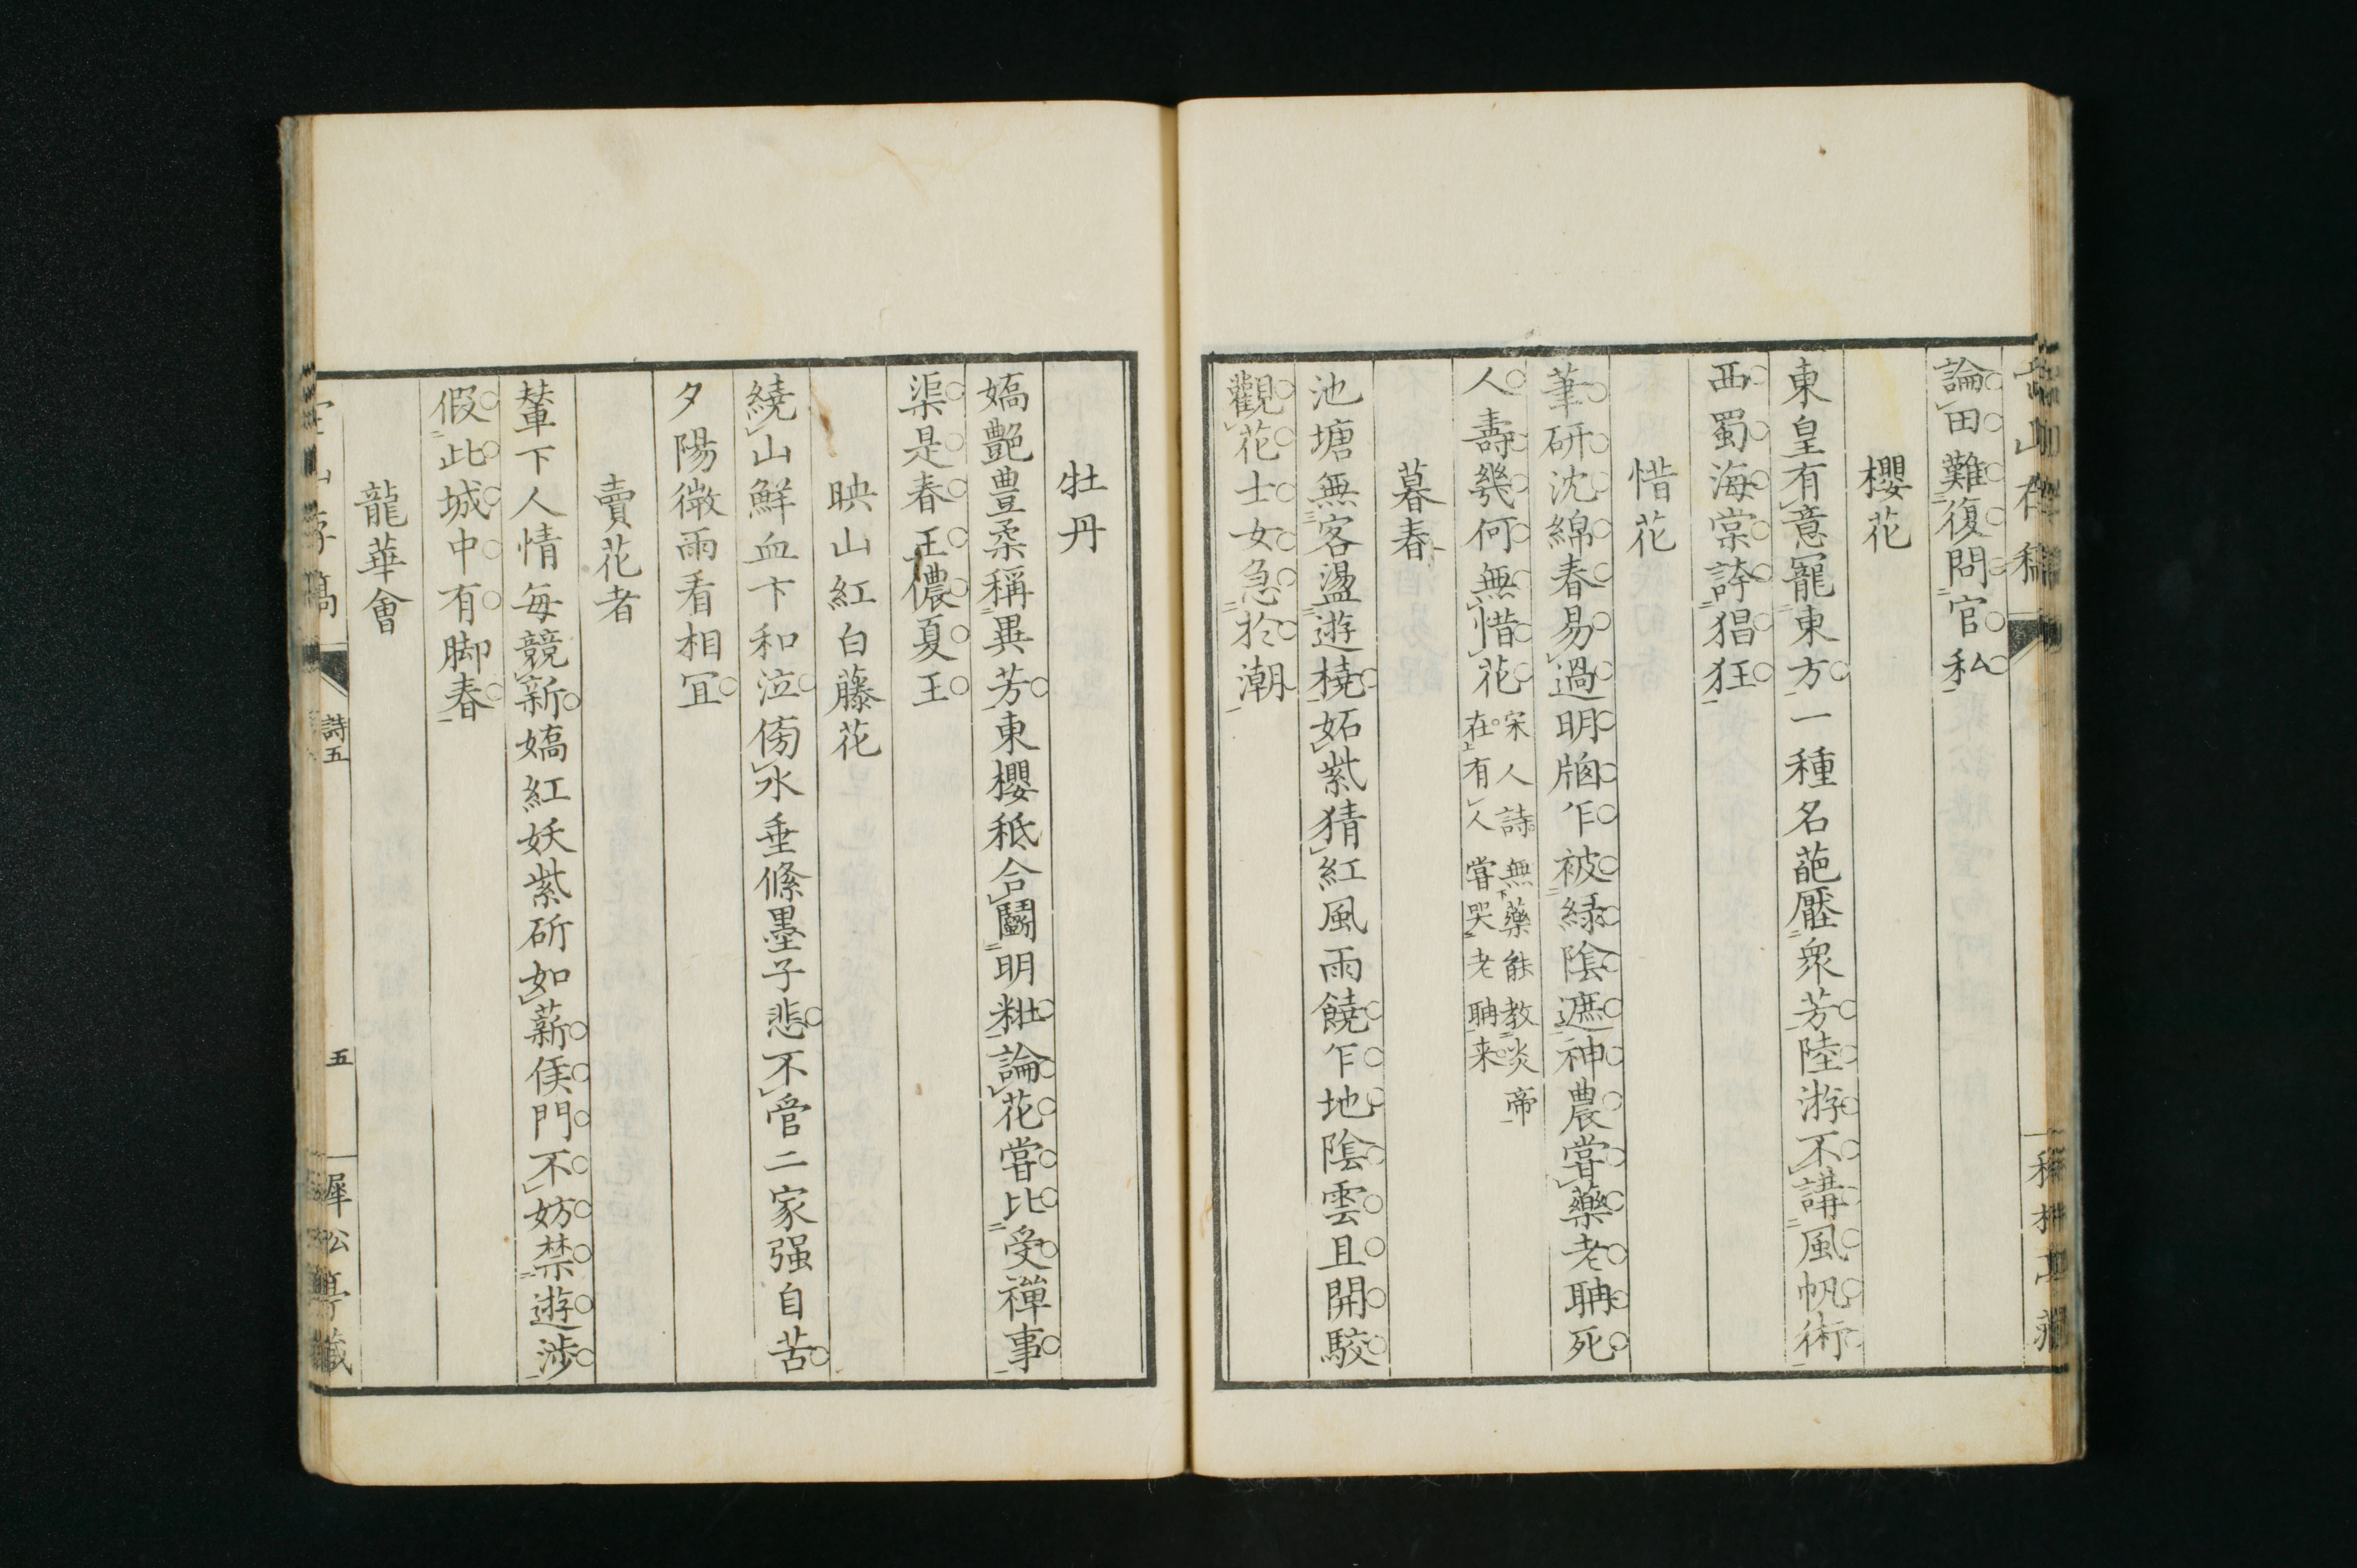 論田難復問官私
櫻花
東皇有意寵東方一種名葩壓衆芳陸游不講風帆術
西蜀海棠誇猖狂
惜花
筆研沈綿春易過明牕乍被緑陰遮神農嘗藥老聃死
人壽幾何無惜花
宋人詩無藥能教炎帝
在有人嘗哭老聃来
暮春
池塘無客盪遊橈妬紫猜紅風雨饒乍地陰雲且開駁
觀花士女急於潮
牡丹
嬌艶豊柔稱異芳東櫻秪合鬪明粧論花嘗比受禪事
渠是春王儂夏王
映山紅白藤花
繞山鮮血卞和泣傍水垂絛墨子悲不管二家强自苦
夕陽微雨看相冝
賣花者
輦下人情每競新嬌紅妖紫斫如薪侯門不妨禁遊渉
假此城中有脚春
龍華會
詩五
五
犀松亭藏